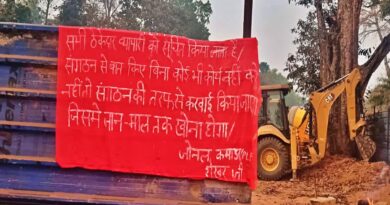 सभी ठेकेदार व्यापारी को सूचित किया जाता है/
संगठन से बात किए बिना कोई भी कार्य नहीं करें
नहीं तो संगठन की तरफ से कारवाई किया जाएगा
जिसमे जान-माल तक खोना होगा/
जोनल कमांडर
शेखर जी